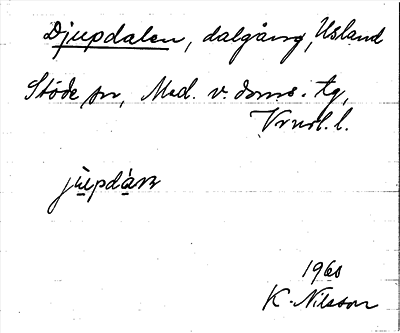 Djupdalen, dalgång, Usland
Stöde sn, Med. v. doms. tg,
Vrnl. l.
jùpdán
1960
K. Nilsson